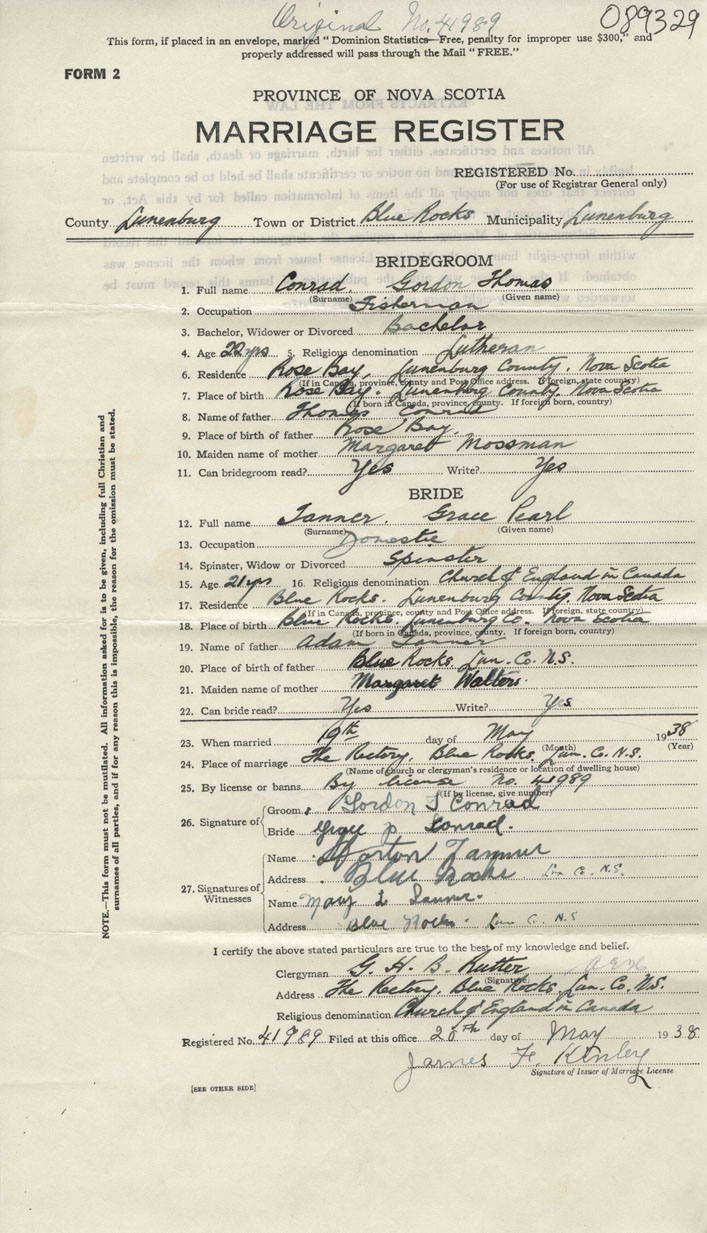 Original No. 41989
089329
This form, if placed in an envelope, marked "Dominion Statistics—Free, penalty for improper use $300," and
properly addressed will pass through the Mail "FREE."
FORM 2
PROVINCE OF NOVA SCOTIA
MARRIAGE REGISTER
REGISTERED No.
(For use of Registrar General only)
County Lunenburg Town or District Blue Rocks Municipality Lunenburg
BRIDEGROOM
1. Full name Conrad, Gordon Thomas
(Surname) (Given name)
2. Occupation Fisherman
3. Bachelor, Widower or Divorced Bachelor
4. Age 22 yrs 5. Religious denomination Lutheran
6. Residence Rose Bay, Lunenburg County, Nova Scotia
(If in Canada, province, county and Post Office address. If foreign, state county)
7. Place of birth Rose Bay, Lunenburg County, Nova Scotia
(If born in Canada, province, county. If foreign born, country)
8. Name of father Thomas Conrad
9. Place of birth of father Rose Bay,
10. Maiden name of mother Margaret Mossman
11. Can bridegroom read? Yes Write? Yes
BRIDE
12. Full name Tanner, Grace Pearl
(Surname) (Given name)
13. Occupation Domestic
14. Spinster, Widow or Divorced Spinster
15. Age 21 yrs 16. Religious denomination Church of England in Canada
17. Residence Blue Rocks, Lunenburg County, Nova Scotia
(If in Canada, province, county and Post Office address. If foreign, state county)
18. Place of birth Blue Rocks, Lunenburg Co. Nova Scotia
(If born in Canada, province, county. If foreign born, country)
19. Name of father Adam Tanner
20. Place of birth of father Blue Rocks, Lun. Co. N.S.
21. Maiden name of mother Margaret Walters
22. Can bride read? Yes Write? Yes
23. When married 19th day of May 1938
(Month) (Year)
24. Place of marriage The Rectory, Blue Rocks, Lun. Co. N.S.
(Name of church or clergyman's residence or location of dwelling house)
25. By license or banns By license No. 41989
(If by license, give number)
26. Signature of Groom Gordon T Conrad
Bride Grace P Conrad.
27. Signatures of Witnesses
Name Norton Tanner
Address Blue Rocks Lun Co. N.S.
Name Mary L Tanner.
Address Blue Rocks. Lun Co. N.S
I certify the above stated particulars are true to the best of my knowledge and belief.
Clergyman G. H. B. Rutter
(Signature)
Address The Rectory, Blue Rocks, Lun. Co. N.S.
Religious denomination Church of England in Canada
Registered No. 41989 Filed at this office 20th day of May 1938
James F. Kinley
Signature of Issuer of Marriage License
[SEE OTHER SIDE]
NOTE.—This form must not be mutilated. All information asked for is to be given, including full Christian and
surnames of all parties, and if for any reason this is impossible, the reason for the omission must be stated.